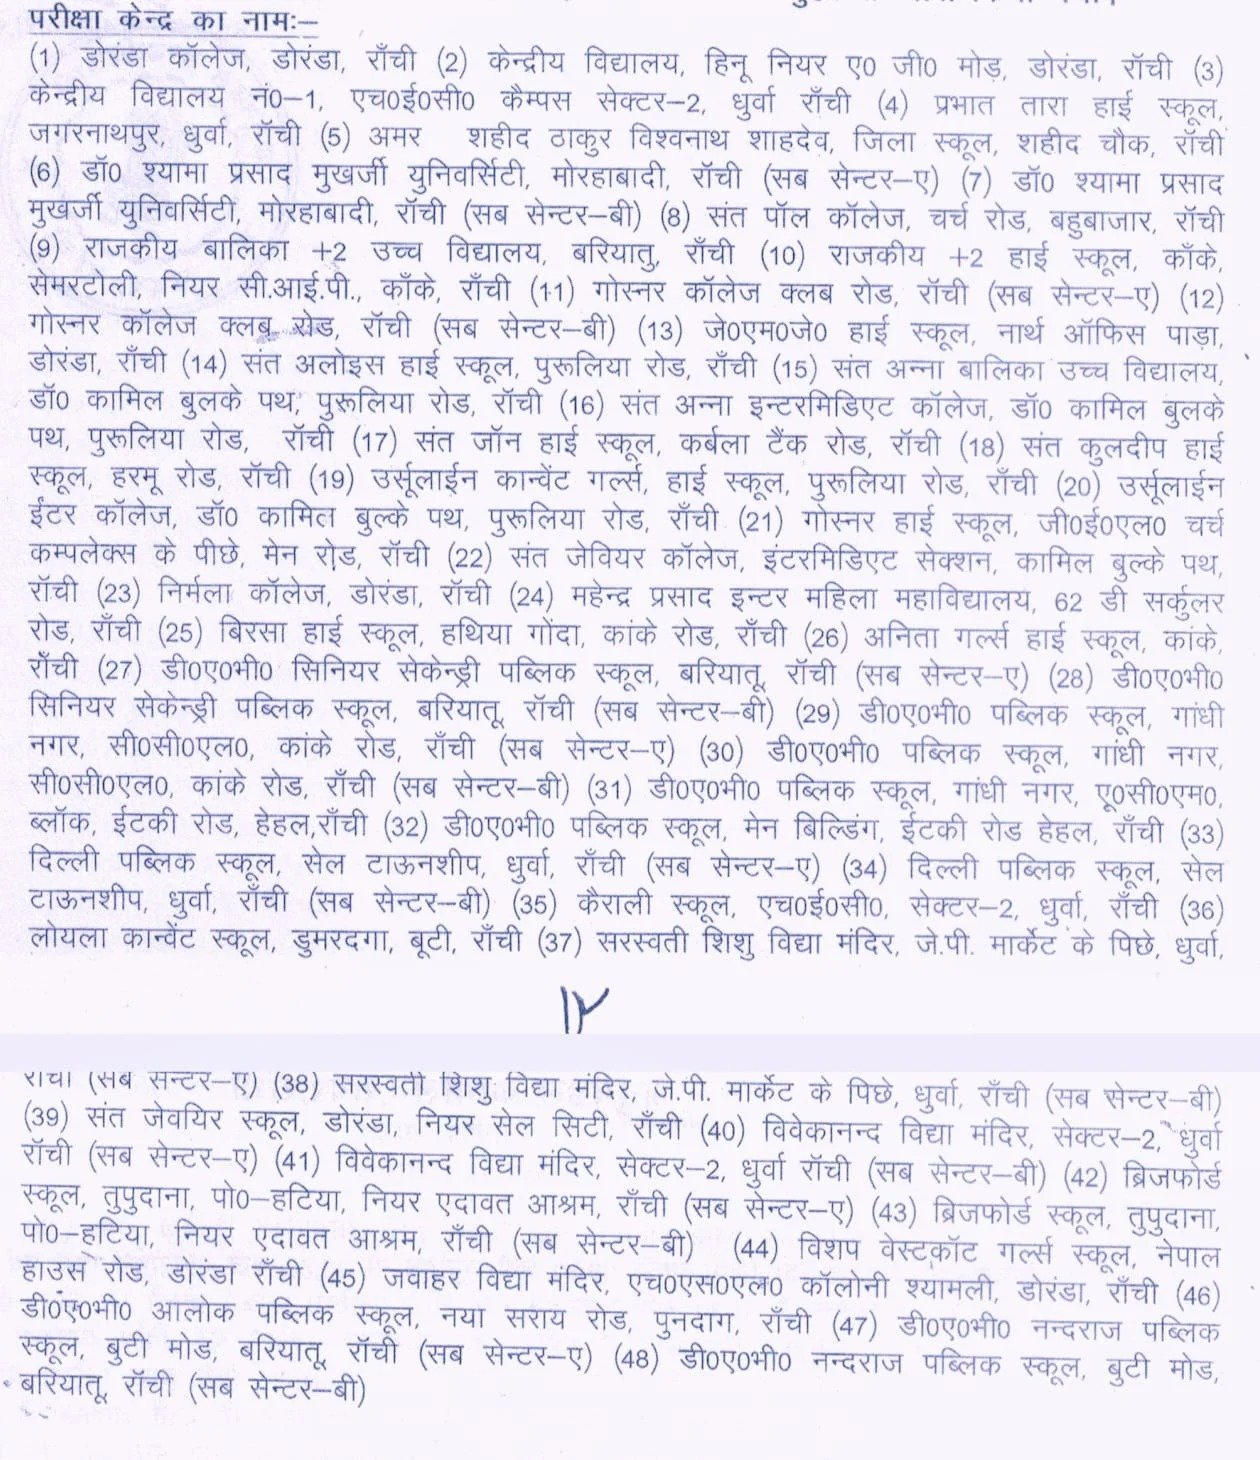 परीक्षा केन्द्र का नामः–
(1) डोरंडा कॉलेज, डोरंडा, राँची (2) केन्द्रीय विद्यालय, हिनू नियर ए० जी० मोड़, डोरंडा, रॉची (3)
केन्द्रीय विद्यालय नं०–1, एच०ई०सी० कैम्पस सेक्टर–2, धुर्वा राँची (4) प्रभात तारा हाई स्कूल,
जगरनाथपुर, धुर्वा, रॉची (5) अमर शहीद ठाकुर विश्वनाथ शाहदेव, जिला स्कूल, शहीद चौक, रॉची
(6) डॉ० श्यामा प्रसाद मुखर्जी युनिवर्सिटी, मोरहाबादी, रॉची (सब सेन्टर–ए) (7) डॉ० श्यामा प्रसाद
मुखर्जी युनिवर्सिटी, मोरहाबादी, रॉची (सब सेन्टर–बी) (8) संत पॉल कॉलेज, चर्च रोड, बहुबाजार, रॉची
(9) राजकीय बालिका +2 उच्च विद्यालय, बरियातु, राँची (10) राजकीय +2 हाई स्कूल, काँके,
सेमरटोली, नियर सी.आई.पी., काँके, राँची (11) गोस्नर कॉलेज क्लब रोड, रॉची (सब सेन्टर–ए) (12)
गोस्नर कॉलेज क्लब रोड, रॉची (सब सेन्टर–बी) (13) जे०एम०जे० हाई स्कूल, नार्थ ऑफिस पाड़ा,
डोरंडा, राँची (14) संत अलोइस हाई स्कूल, पुरूलिया रोड, राँची (15) संत अन्ना बालिका उच्च विद्यालय,
डॉ० कामिल बुलके पथ, पुरूलिया रोड, रॉची (16) संत अन्ना इन्टरमिडिएट कॉलेज, डॉ० कामिल बुलके
पथ, पुरूलिया रोड, रॉची (17) संत जॉन हाई स्कूल, कर्बला टैंक रोड, रॉची (18) संत कुलदीप हाई
स्कूल, हरमू रोड, रॉची (19) उर्सूलाईन कान्वेंट गर्ल्स, हाई स्कूल, पुरूलिया रोड, राँची (20) उर्सूलाईन
ईंटर कॉलेज, डॉ० कामिल बुल्के पथ, पुरूलिया रोड, राँची (21) गोस्नर हाई स्कूल, जी०ई०एल० चर्च
कम्पलेक्स के पीछे, मेन रोड, रॉची (22) संत जेवियर कॉलेज, इंटरमिडिएट सेक्शन, कामिल बुल्के पथ,
रॉची (23) निर्मला कॉलेज, डोरंडा, रॉची (24) महेन्द्र प्रसाद इन्टर महिला महाविद्यालय, 62 डी सर्कुलर
रोड, राँची (25) बिरसा हाई स्कूल, हथिया गोंदा, कांके रोड, राँची (26) अनिता गर्ल्स हाई स्कूल, कांके,
राँची (27) डी०ए०भी० सिनियर सेकेन्ड्री पब्लिक स्कूल, बरियातू, रॉची (सब सेन्टर–ए) (28) डी०ए०भी०
सिनियर सेकेन्ड्री पब्लिक स्कूल, बरियातू, रॉची (सब सेन्टर–बी) (29) डी०ए०भी० पब्लिक स्कूल, गांधी
नगर, सी०सी०एल०, कांके रोड, राँची (सब सेन्टर–ए) (30) डी०ए०भी० पब्लिक स्कूल, गांधी नगर,
सी०सी०एल०, कांके रोड, राँची (सब सेन्टर–बी) (31) डी०ए०भी० पब्लिक स्कूल, गांधी नगर, ए०सी०एम०,
ब्लॉक, ईटकी रोड, हेहल,राँची (32) डी०ए०भी० पब्लिक स्कूल, मेन बिल्डिंग, ईटकी रोड हेहल, राँची (33)
दिल्ली पब्लिक स्कूल, सेल टाऊनशीप, धुर्वा, राँची (सब सेन्टर–ए) (34) दिल्ली पब्लिक स्कूल, सेल
टाऊनशीप, धुर्वा, राँची (सब सेन्टर–बी) (35) कैराली स्कूल, एच०ई०सी०, सेक्टर–2, धुर्वा, राँची (36)
लोयला कान्वेंट स्कूल, डुमरदगा, बूटी, राँची (37) सरस्वती शिशु विद्या मंदिर, जे.पी. मार्केट के पिछे, धुर्वा,
राँची (सब सेन्टर–ए) (38) सरस्वती शिशु विद्या मंदिर, जे.पी. मार्केट के पिछे, धुर्वा, राँची (सब सेन्टर–बी)
(39) संत जेवयिर स्कूल, डोरंडा, नियर सेल सिटी, राँची (40) विवेकानन्द विद्या मंदिर, सेक्टर–2, धुर्वा
रॉची (सब सेन्टर–ए) (41) विवेकानन्द विद्या मंदिर, सेक्टर–2, धुर्वा रॉची (सब सेन्टर–बी) (42) ब्रिजफोर्ड
स्कूल, तुपुदाना, पो०–हटिया, नियर एदावत आश्रम, राँची (सब सेन्टर–ए) (43) ब्रिजफोर्ड स्कूल, तुपुदाना,
पो०–हटिया, नियर एदावत आश्रम, राँची (सब सेन्टर–बी) (44) विशप वेस्टकॉट गर्ल्स स्कूल, नेपाल
हाउस रोड, डोरंडा राँची (45) जवाहर विद्या मंदिर, एच०एस०एल० कॉलोनी श्यामली, डोरंडा, राँची (46)
डी०ए०भी० आलोक पब्लिक स्कूल, नया सराय रोड, पुनदाग, राँची (47) डी०ए०भी० नन्दराज पब्लिक
स्कूल, बुटी मोड, बरियातू, रॉची (सब सेन्टर–ए) (48) डी०ए०भी० नन्दराज पब्लिक स्कूल, बुटी मोड,
बरियातू, रॉची (सब सेन्टर–बी)